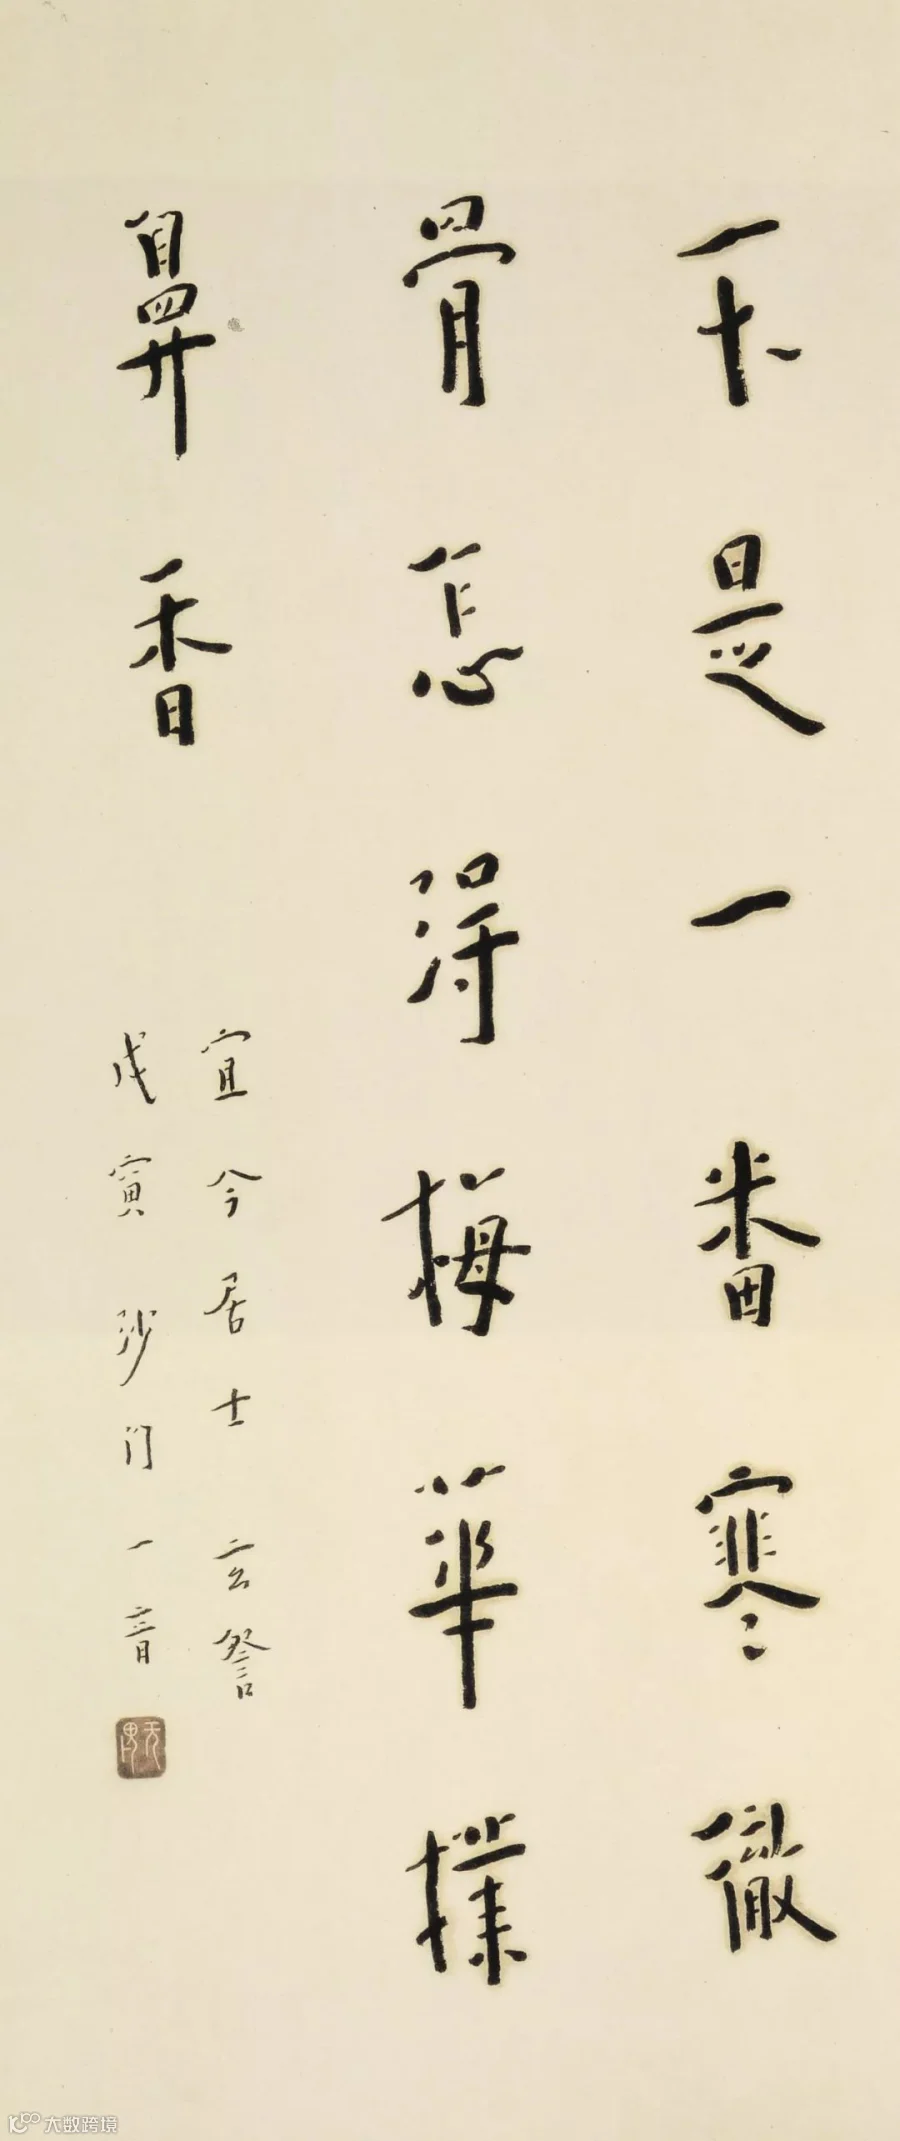 不是一番寒徹
骨怎得梅華撲
鼻香
宜今居士 玄詧
戊寅沙門一音
大数跨境